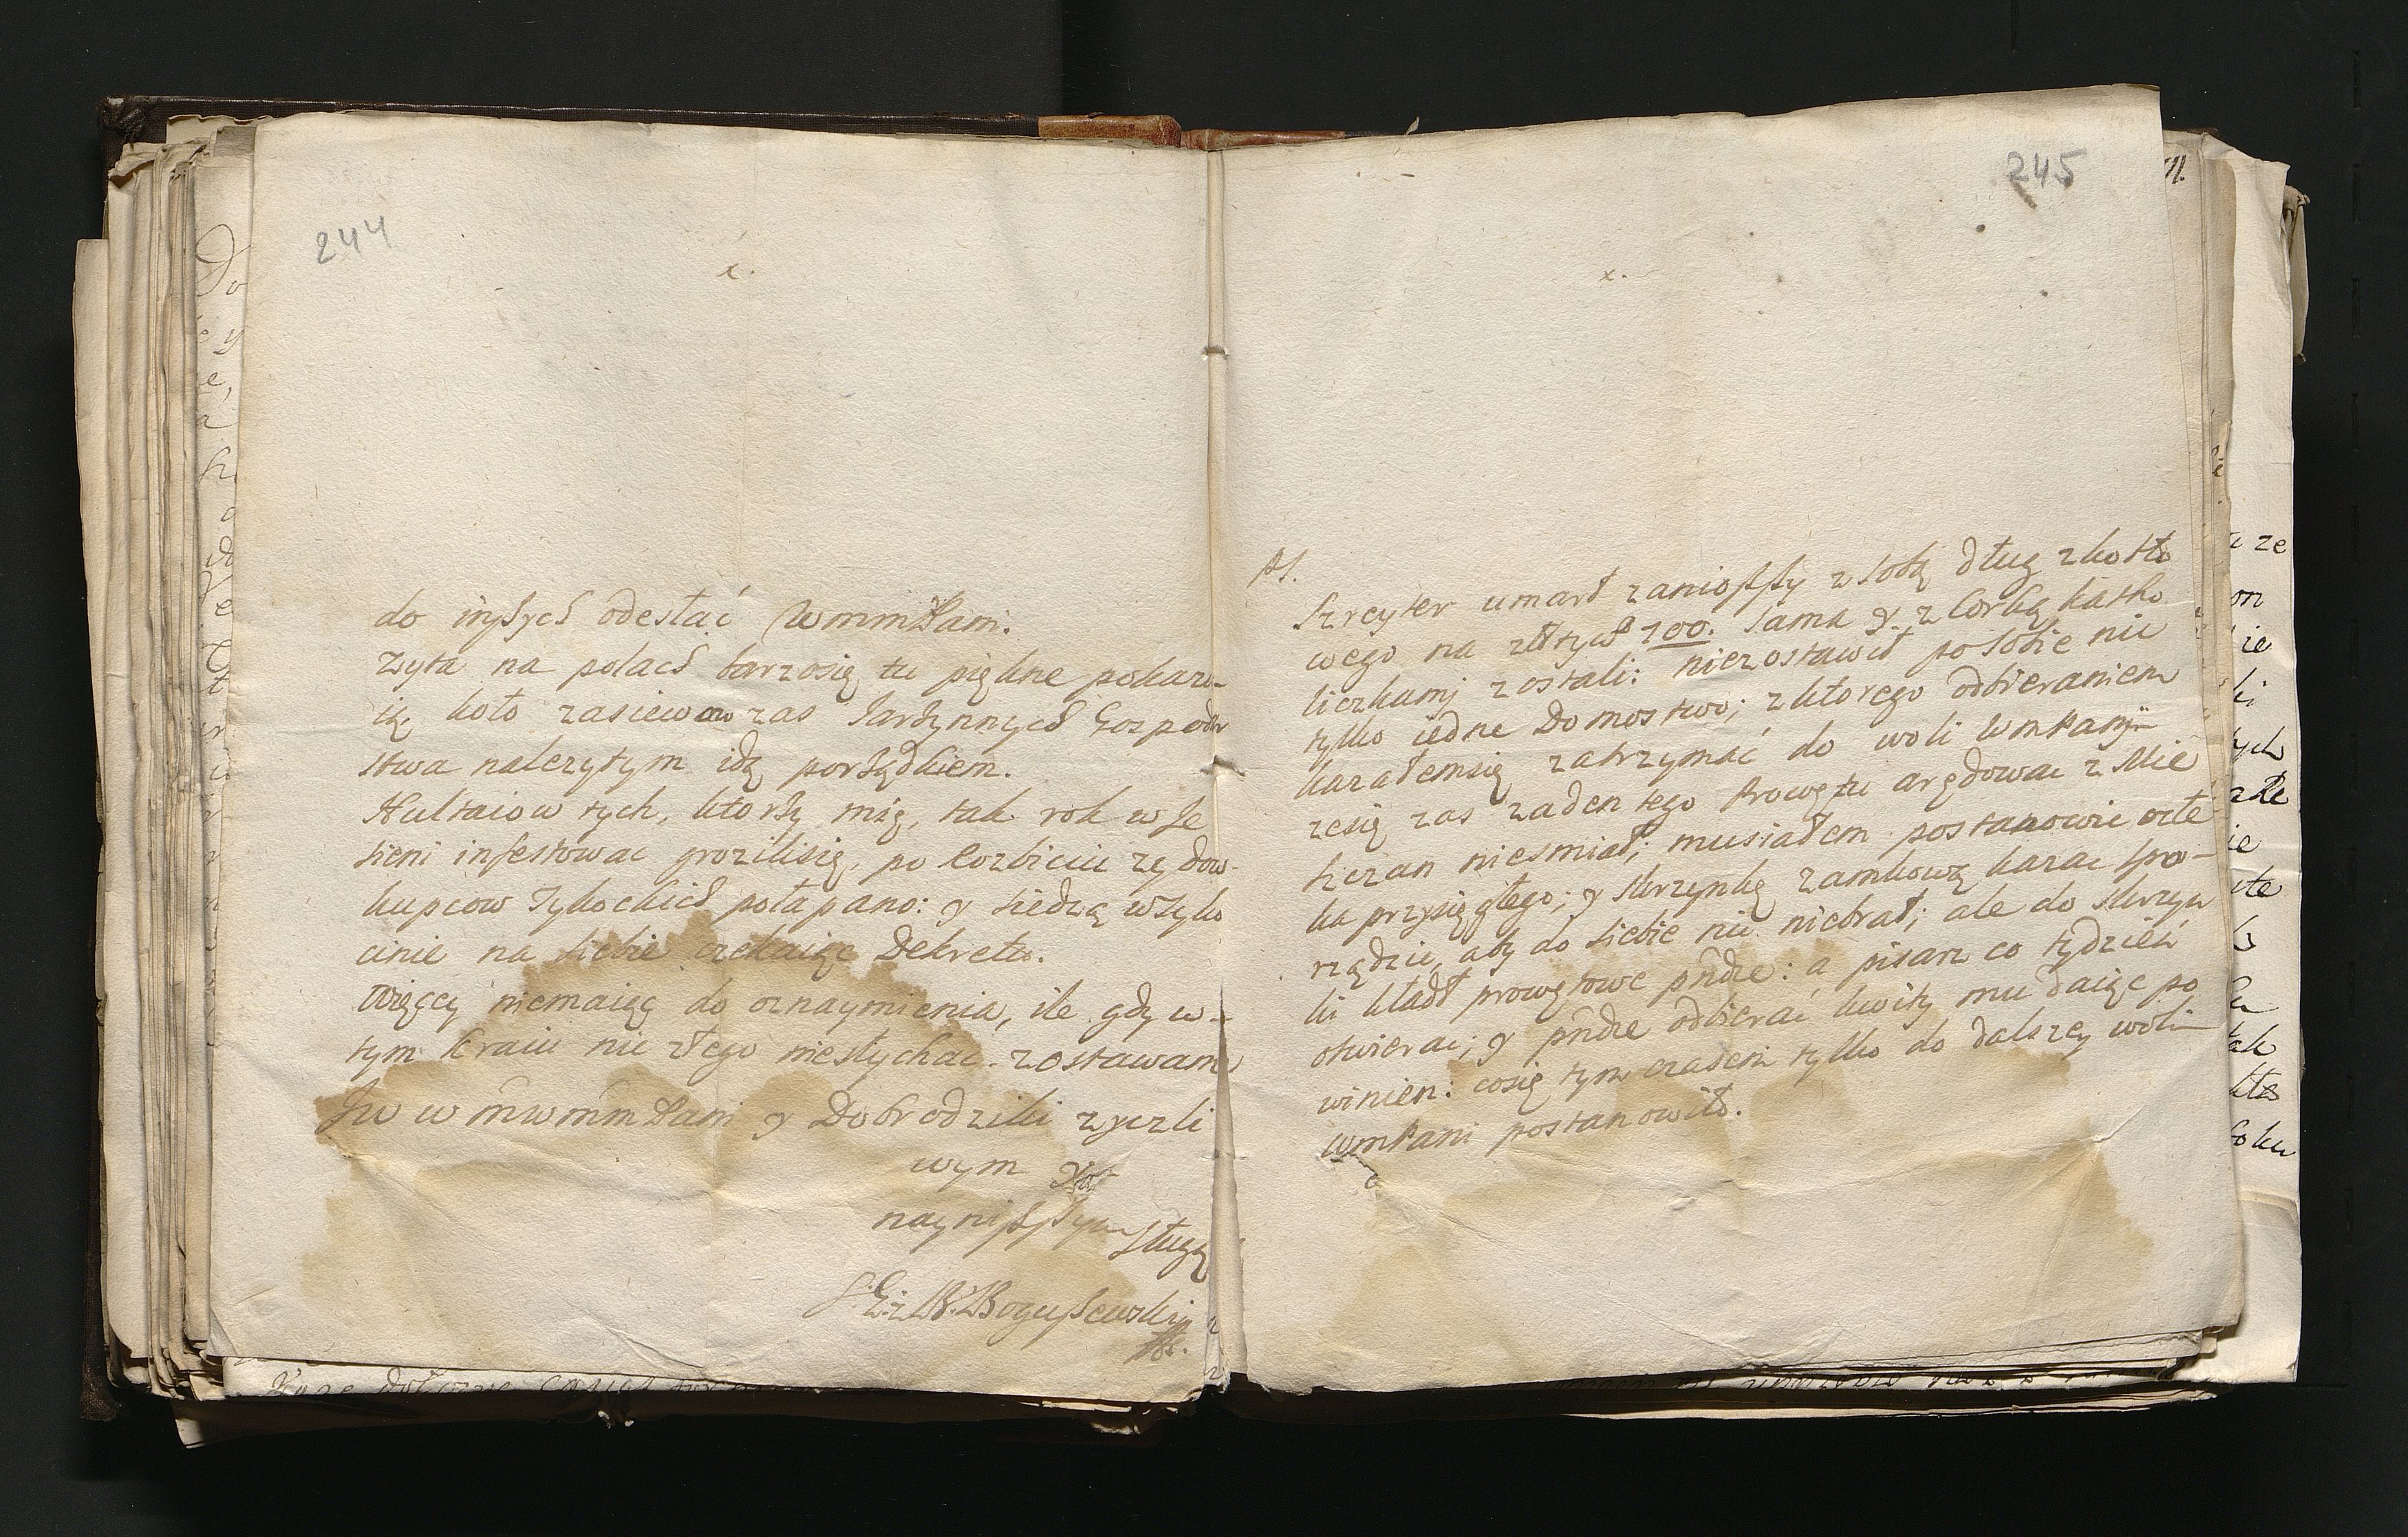 244
x.
do inszych odesłać WmmPani.
Zyta na polach barzosię tu piękne pokazu-
ią koło zasiewow zas Jarzynnych Gospodar
stwa nalezytym idą porządkiem.
Hultaiow tych, ktorzy mię, tak rok w Je
sieni infestowac grozilisię, po rozbiciu zydow-
kupcow Tykockich połapano: y siedzą w Tyko
cinie na siebie czekaiąc Dekretu.
Więcey niemaiąc do oznaymienia, ile gdy w-
tym kraiu nic złego niesłychac. zostawam
Jw w mwmm Pani y Dobrodziki zyczli
wym
naynisszym sługą
Boguszewski
245
x.
PS.
Szreyter umarł zaniosszy z sobą dług zkosto
wego na złłtych 100. Sama y z Corką kasko
liczkamj zostali: niezostawił po sobie nic
tylko iedne Domostwo; z ktorego odbieraniem
kazałemsię zatrzymać do woli WmPanij
zesię zas zaden tego Prowętu arędowac z Mie
szczan niesmiał; musiałem postanowic człe
ka przysięgłego; y skrzynkę zamkową kazac spo-
rządzic, aby do siebie nic niebrał; ale do skrzyn
ki kładł prowętowe pñdze: a pisarz co tydzień
otwierac; y pñdze odbierać kwity mu daiąc po
winien: cosię tym czasem tylko do dalszey woli
WmPani postanowiło.